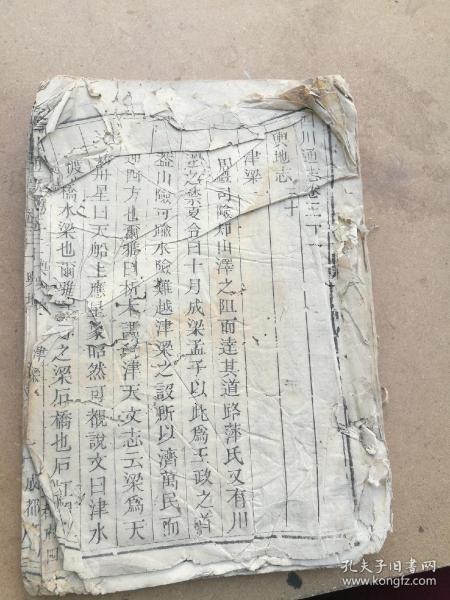 川通志卷三十一
輿地志三十
津梁
周禮司險知山澤之阻而達其道路萍氏又有川
之禁夏令曰十月成梁孟子以此為王政之
蓋山險可踰水險難越津梁之設所以濟萬民而
四方也爾雅曰析木謂之津天文志云梁為天
星曰天船上應星象昭然可覩說文曰津水
渡橋水梁也爾雅之梁石橋也戶
津梁
成都
孔夫子旧书网
www.kongfz.com